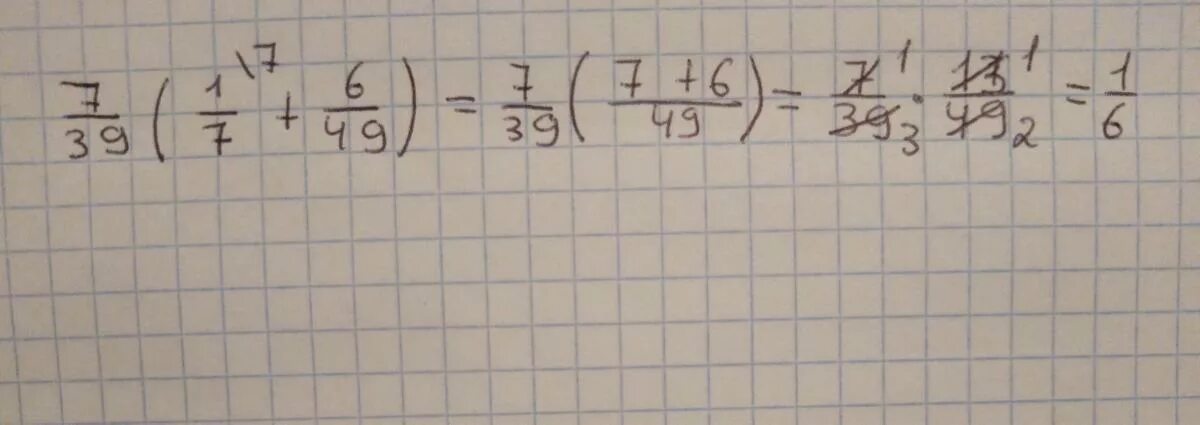 7/39 (1/7 \7 + 6/49) = 7/39 (7 + 6/49) = 7/39 1 3 · 13/49 1 2 = 1/6